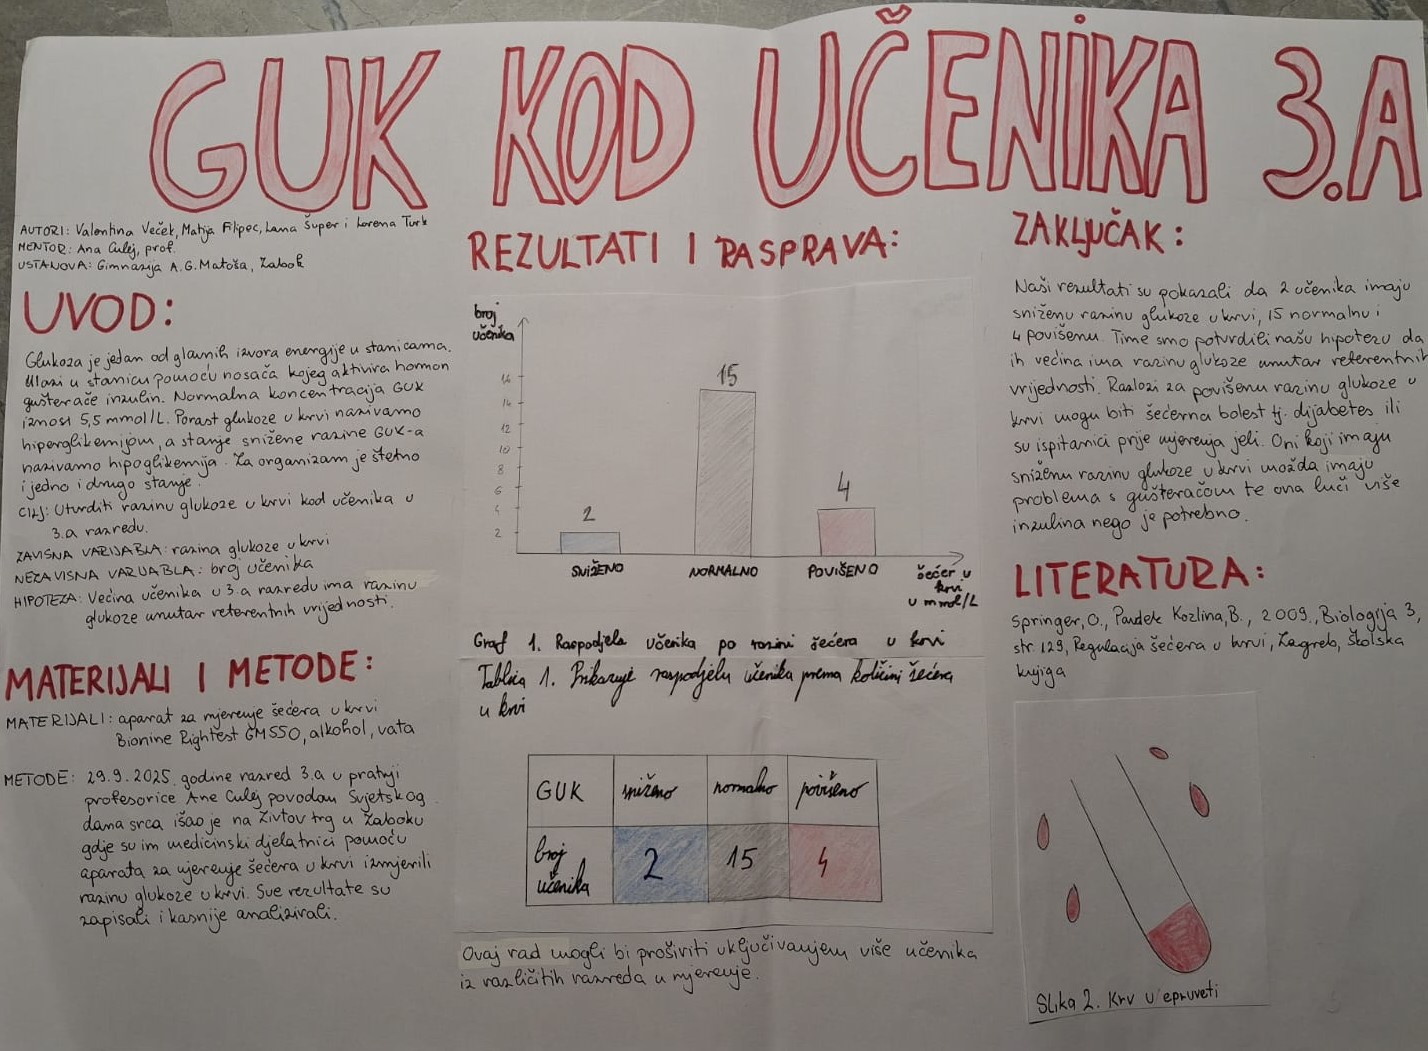 GUK KOD UČENIKA 3.A
AUTORI: Valentina Veček, Matija Filipec, Lana Šuper i Lorena Turk
MENTOR: Ana Culej, prof.
USTANOVA: Gimnazija A.G.Matoša, Zabok
UVOD:
Glukoza je jedan od glavnih izvora energije u stanicama.
Ulazi u stanicu pomoću nosača kojeg aktivira hormon
gušterače inzulin. Normalna koncentracija GUK
iznosi 5,5 mmol/L. Porast glukoze u krvi nazivamo
hiperglikemijom, a stanje snižene razine GUK-a
nazivamo hipoglikemija. Za organizam je štetno
i jedno i drugo stanje.
CILJ: Utvrditi razinu glukoze u krvi kod učenika u
3.a razredu.
ZAVISNA VARIJABLA: razina glukoze u krvi
NEZAVISNA VARIJABLA: broj učenika
HIPOTEZA: Većina učenika u 3.a razredu ima razinu
glukoze unutar referentnih vrijednosti.
MATERIJALI I METODE:
MATERIJALI: aparat za mjerenje šećera u krvi
Bionine Rightest GM550, alkohol, vata
METODE: 29.9.2025. godine razred 3.a u pratnji
profesorice Ane Culej povodom Svjetskog
dana srca išao je na Živtov trg u Zaboku
gdje su im medicinski djelatnici pomoću
aparata za mjerenje šećera u krvi izmjerili
razinu glukoze u krvi. Sve rezultate su
zapisali i kasnije analizirali.
REZULTATI I RASPRAVA:
broj
učenika
16
14
12
10
8
6
4
2
2
15
4
SNIŽENO
NORMALNO
POVIŠENO
šećer u
krvi
u mmol/L
Graf 1. Raspodjela učenika po razini šećera u krvi
Tablica 1. Prikazuje raspodjelu učenika prema količini šećera
u krvi
GUK sniženo normalno povišeno
broj
učenika 2 15 4
Ovaj rad mogli bi proširiti uključivanjem više učenika
iz različitih razreda u mjerenje.
ZAKLJUČAK:
Naši rezultati su pokazali da 2 učenika imaju
sniženu razinu glukoze u krvi, 15 normalnu i
4 povišenu. Time smo potvrdili našu hipotezu da
ih većina ima razinu glukoze unutar referentnih
vrijednosti. Razlozi za povišenu razinu glukoze u
krvi mogu biti šećerna bolest tj. dijabetes ili
su ispitanici prije mjerenja jeli. Oni koji imaju
sniženu razinu glukoze u krvi možda imaju
problema s gušteračom te ona luči više
inzulina nego je potrebno.
LITERATURA:
Springer, O., Pevalek Kozlina, B., 2009., Biologija 3,
str. 129, Regulacija šećera u krvi, Zagreb, Školska
knjiga
Slika 2. Krv u epruveti